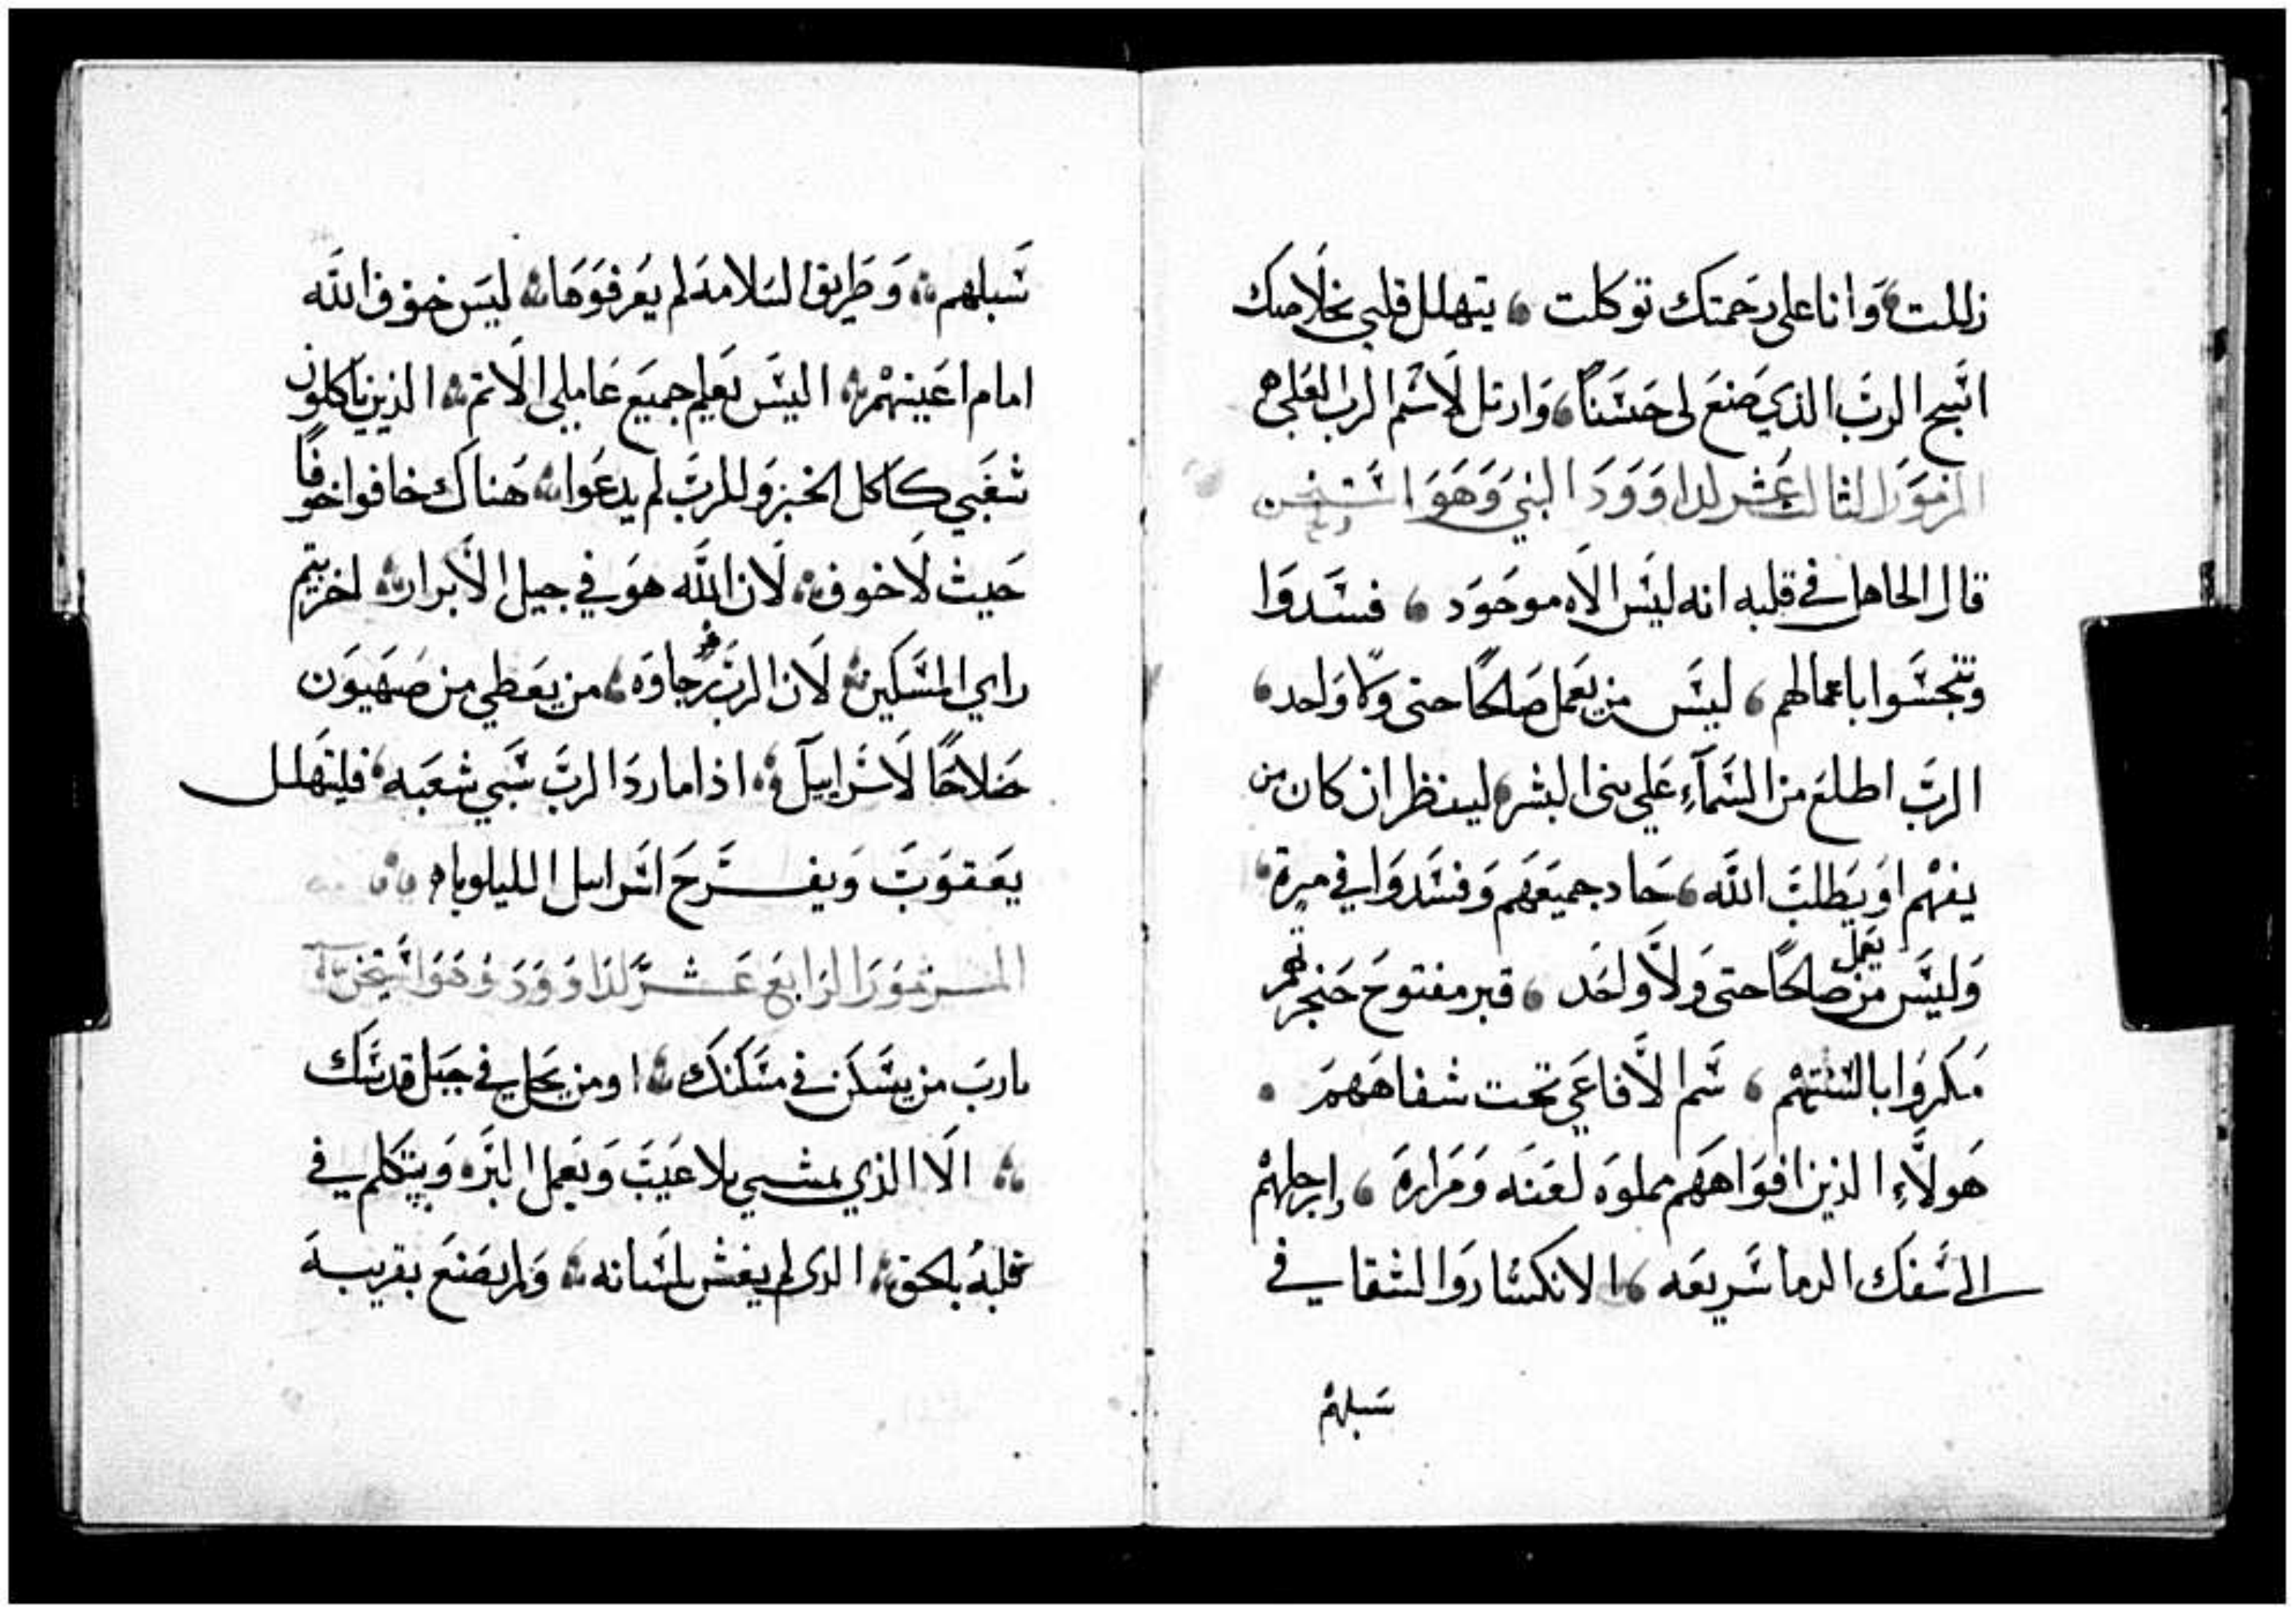 زللت وَانا على رحَمتَك توكلت يتهلل قلبي بخلَاصك
اسَّبح الربَّ الذي صَنعَ لى حَسَناً وَارتل لاسَم الربَ العَلي
المزموَر الثالث عَشر لداوَوَدَ النبي وَهوَ
قال الجاهل في قلبه انه ليسَ الَاه موجَوَد فسَدوَا
وتنجسَوا باعمالهم ليسَ من يَعمل صَالحًا حتى وَلا وَاحد
الربَّ اطلعَ من السَمآءِ عَلي بني البشر لينظر ان كان من
يفهم اوَ يَطلبَ اللَّه حَاد جميعَهم وَفسَدوَا في مرة
وَليسَ من يعمل صَالحًا حتى وَلاَ وَاحَد قبر مفتوحَ حَنجرتهم
مَكروَا بالسَنتهم سَم الَافاعَي تحت شفاهَهمَ
هَولَاءِ الذين افوَاههَم مملوَه لعَنَه وَمَرارة وارجلهم
الي سَفك الدما سَريعَه الانكسَار وَالشقا في
سبلهم
سَبلهم وَطَريق السَلامة لم يعَرفوَهَا ليسَ خوف اللَّه
امام اعَينهم اليسَ يَعلم جميعَ عَاملي الَاثم الذين ياكلون
شعَبي كاكل الخبز وَللربَّ لم يدعَوا هَناك خافوا خوفًا
حَيث لَا خوف لَان اللَّه هوَ في جيل الَابرار اخزيتم
راي المسَكين لَان الربَ رجاوَه من يعَطي من صَهيَوَن
خلاصًا لَاسَراييل اذا ما ردَ الربَّ سَبي شعَبه فليتهلل
يَعَقوَبَ وَيفرَحَ اسَراييل الليلوياه
المزموَر الرابعَ عَشر لداوَوَدَ وَهَوَ
يا ربَ من يسَكن في مسَكنك اومن يحَل في جبَل قدسَك
الَا الذي يمشي بلا عَيبَ وَيعَمل البَر وَيتكلم في
قلبه بالحق الذي لم يغش بلسَانه وَلم يصَنعَ بقريبه